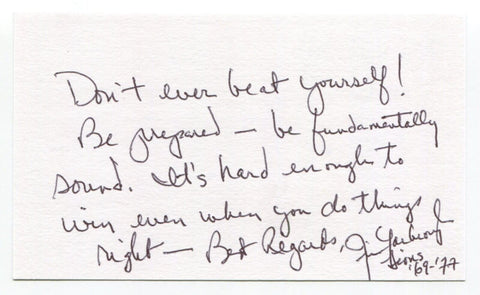 Don't ever beat yourself!
Be prepared — be fundamentally
sound. It's hard enough to
win even when you do things
right — Best Regards, Jim Yarbrough
Lions
'69-'77